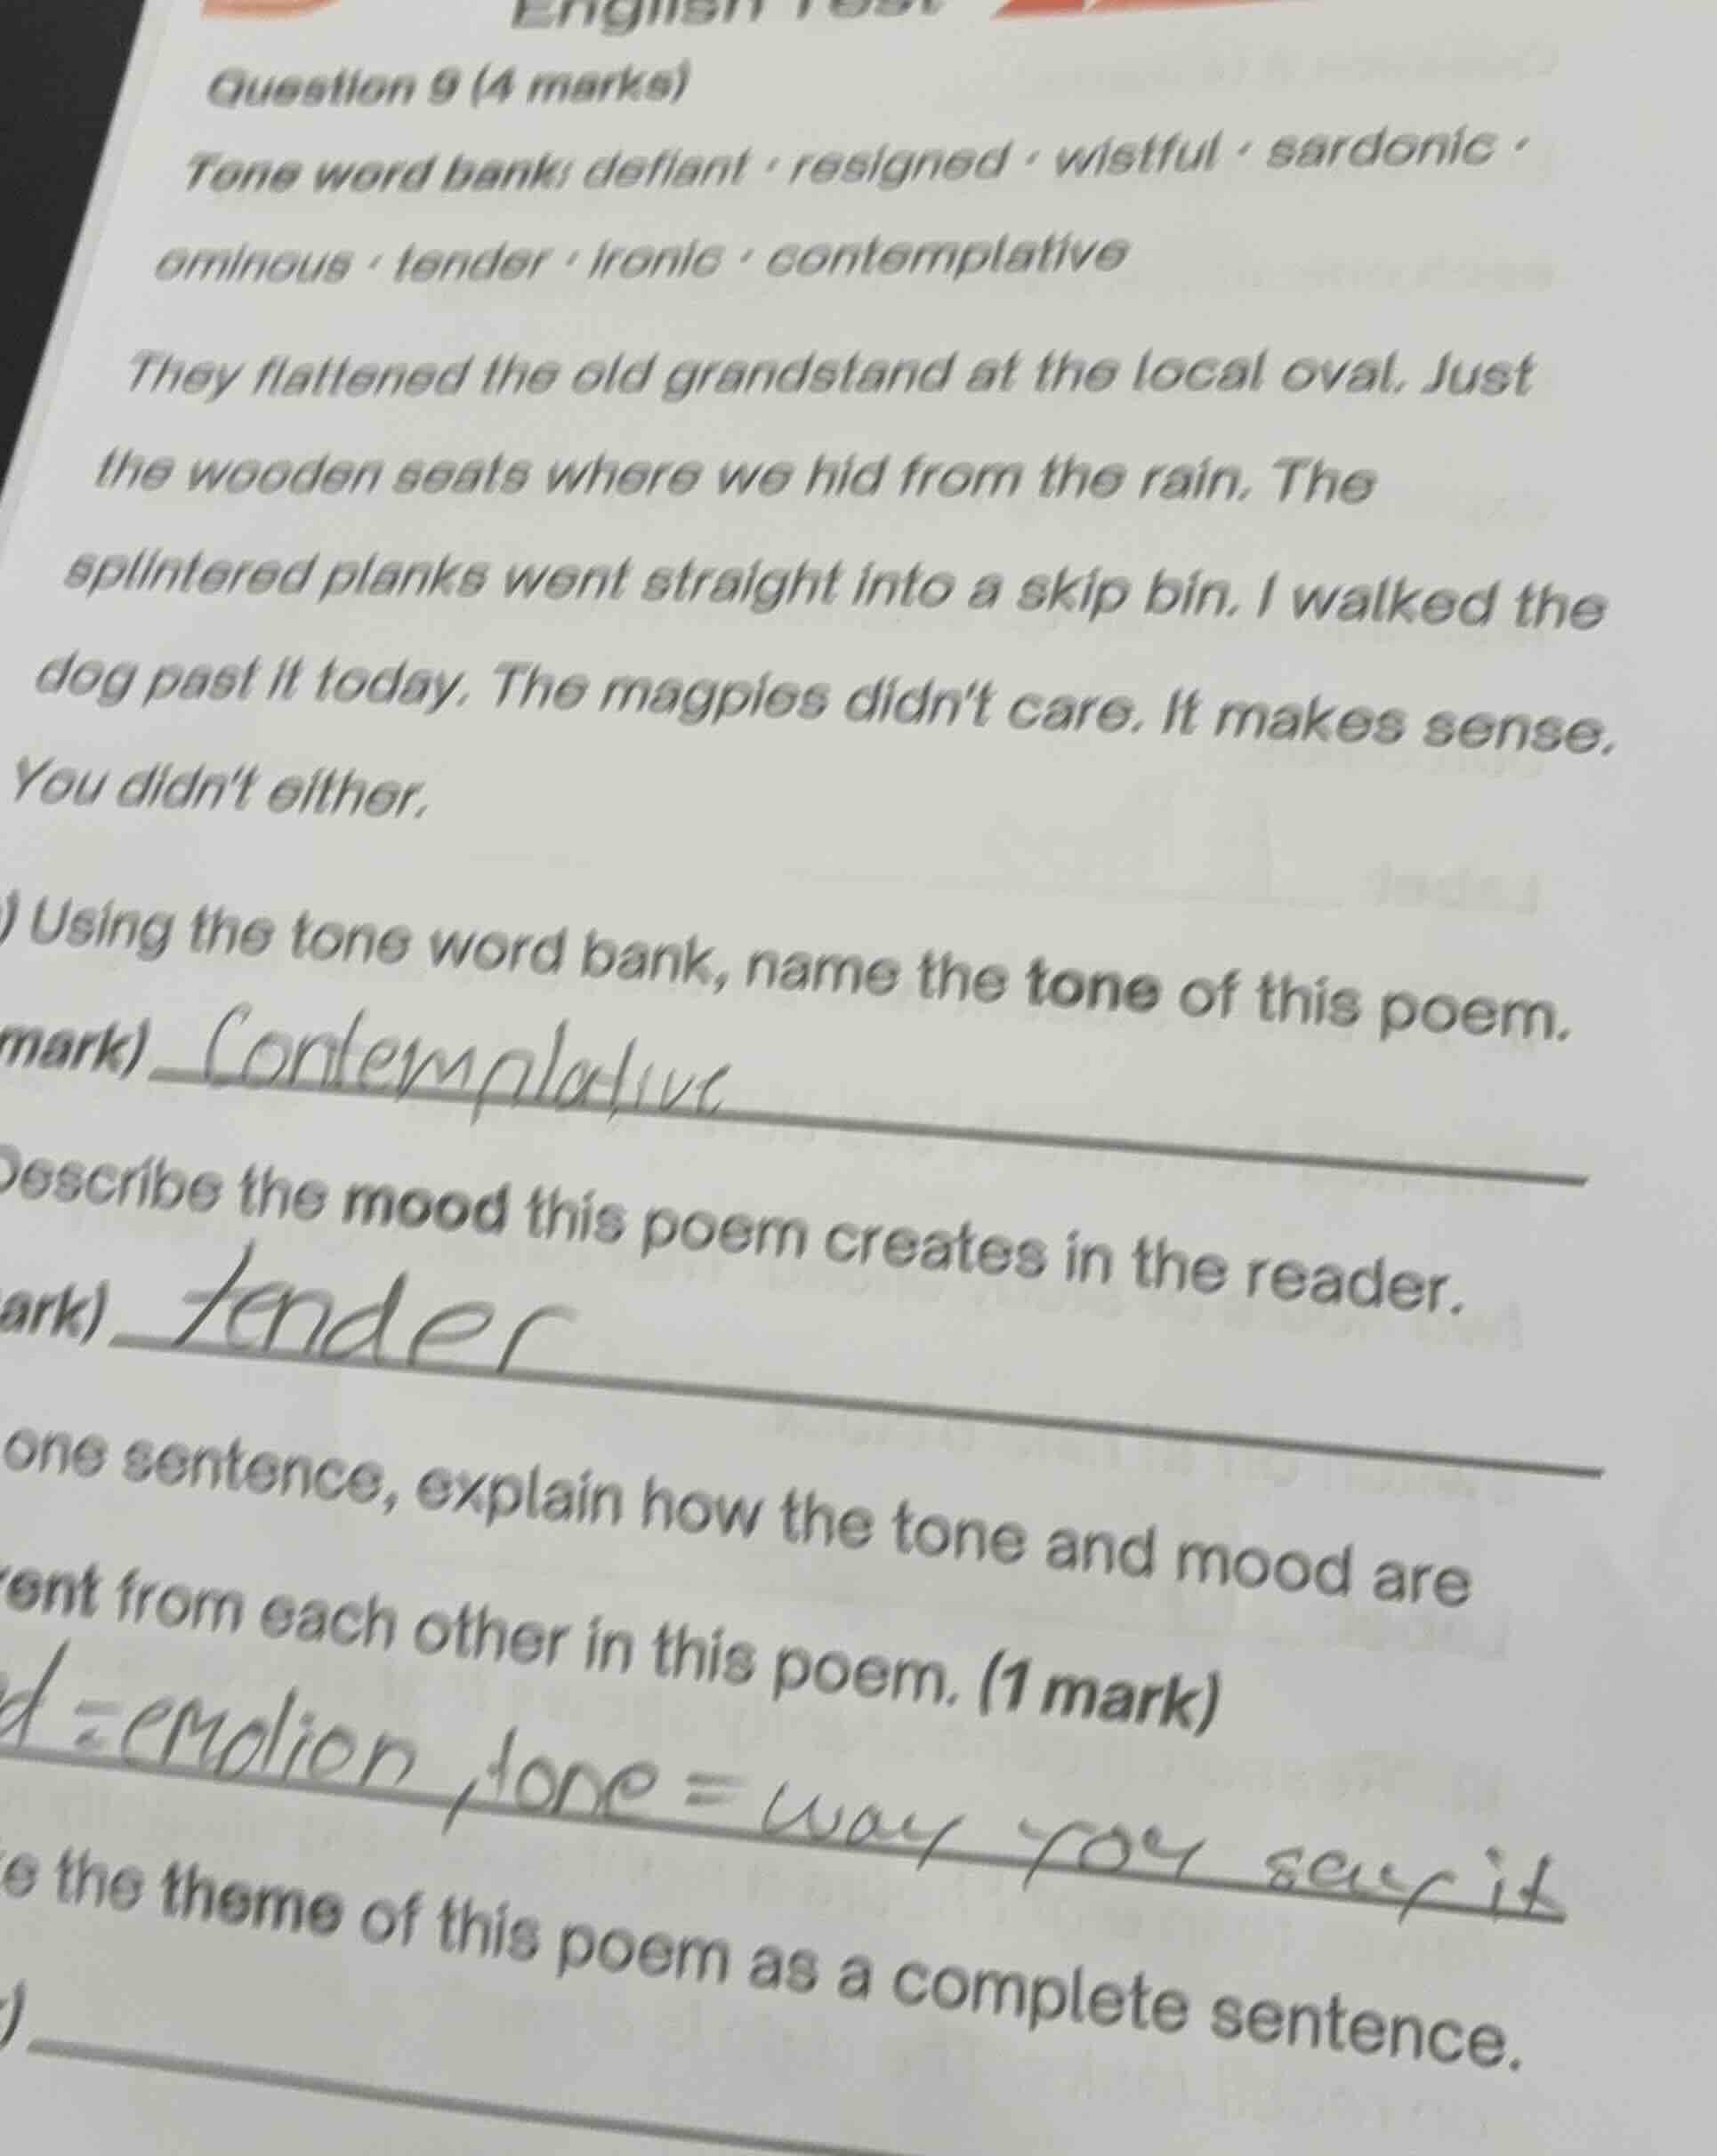 English Test
Question 9 (4 marks)
Tone word bank: defiant · resigned · wistful · sardonic ·
ominous · tender · ironic · contemplative
They flattened the old grandstand at the local oval. Just
the wooden seats where we hid from the rain. The
splintered planks went straight into a skip bin. I walked the
dog past it today. The magpies didn't care. It makes sense.
You didn't either.
) Using the tone word bank, name the tone of this poem.
mark) Contemplative
Describe the mood this poem creates in the reader.
ark) tender
one sentence, explain how the tone and mood are
rent from each other in this poem. (1 mark)
d = emotion, tone = way you say it
e the theme of this poem as a complete sentence.
)